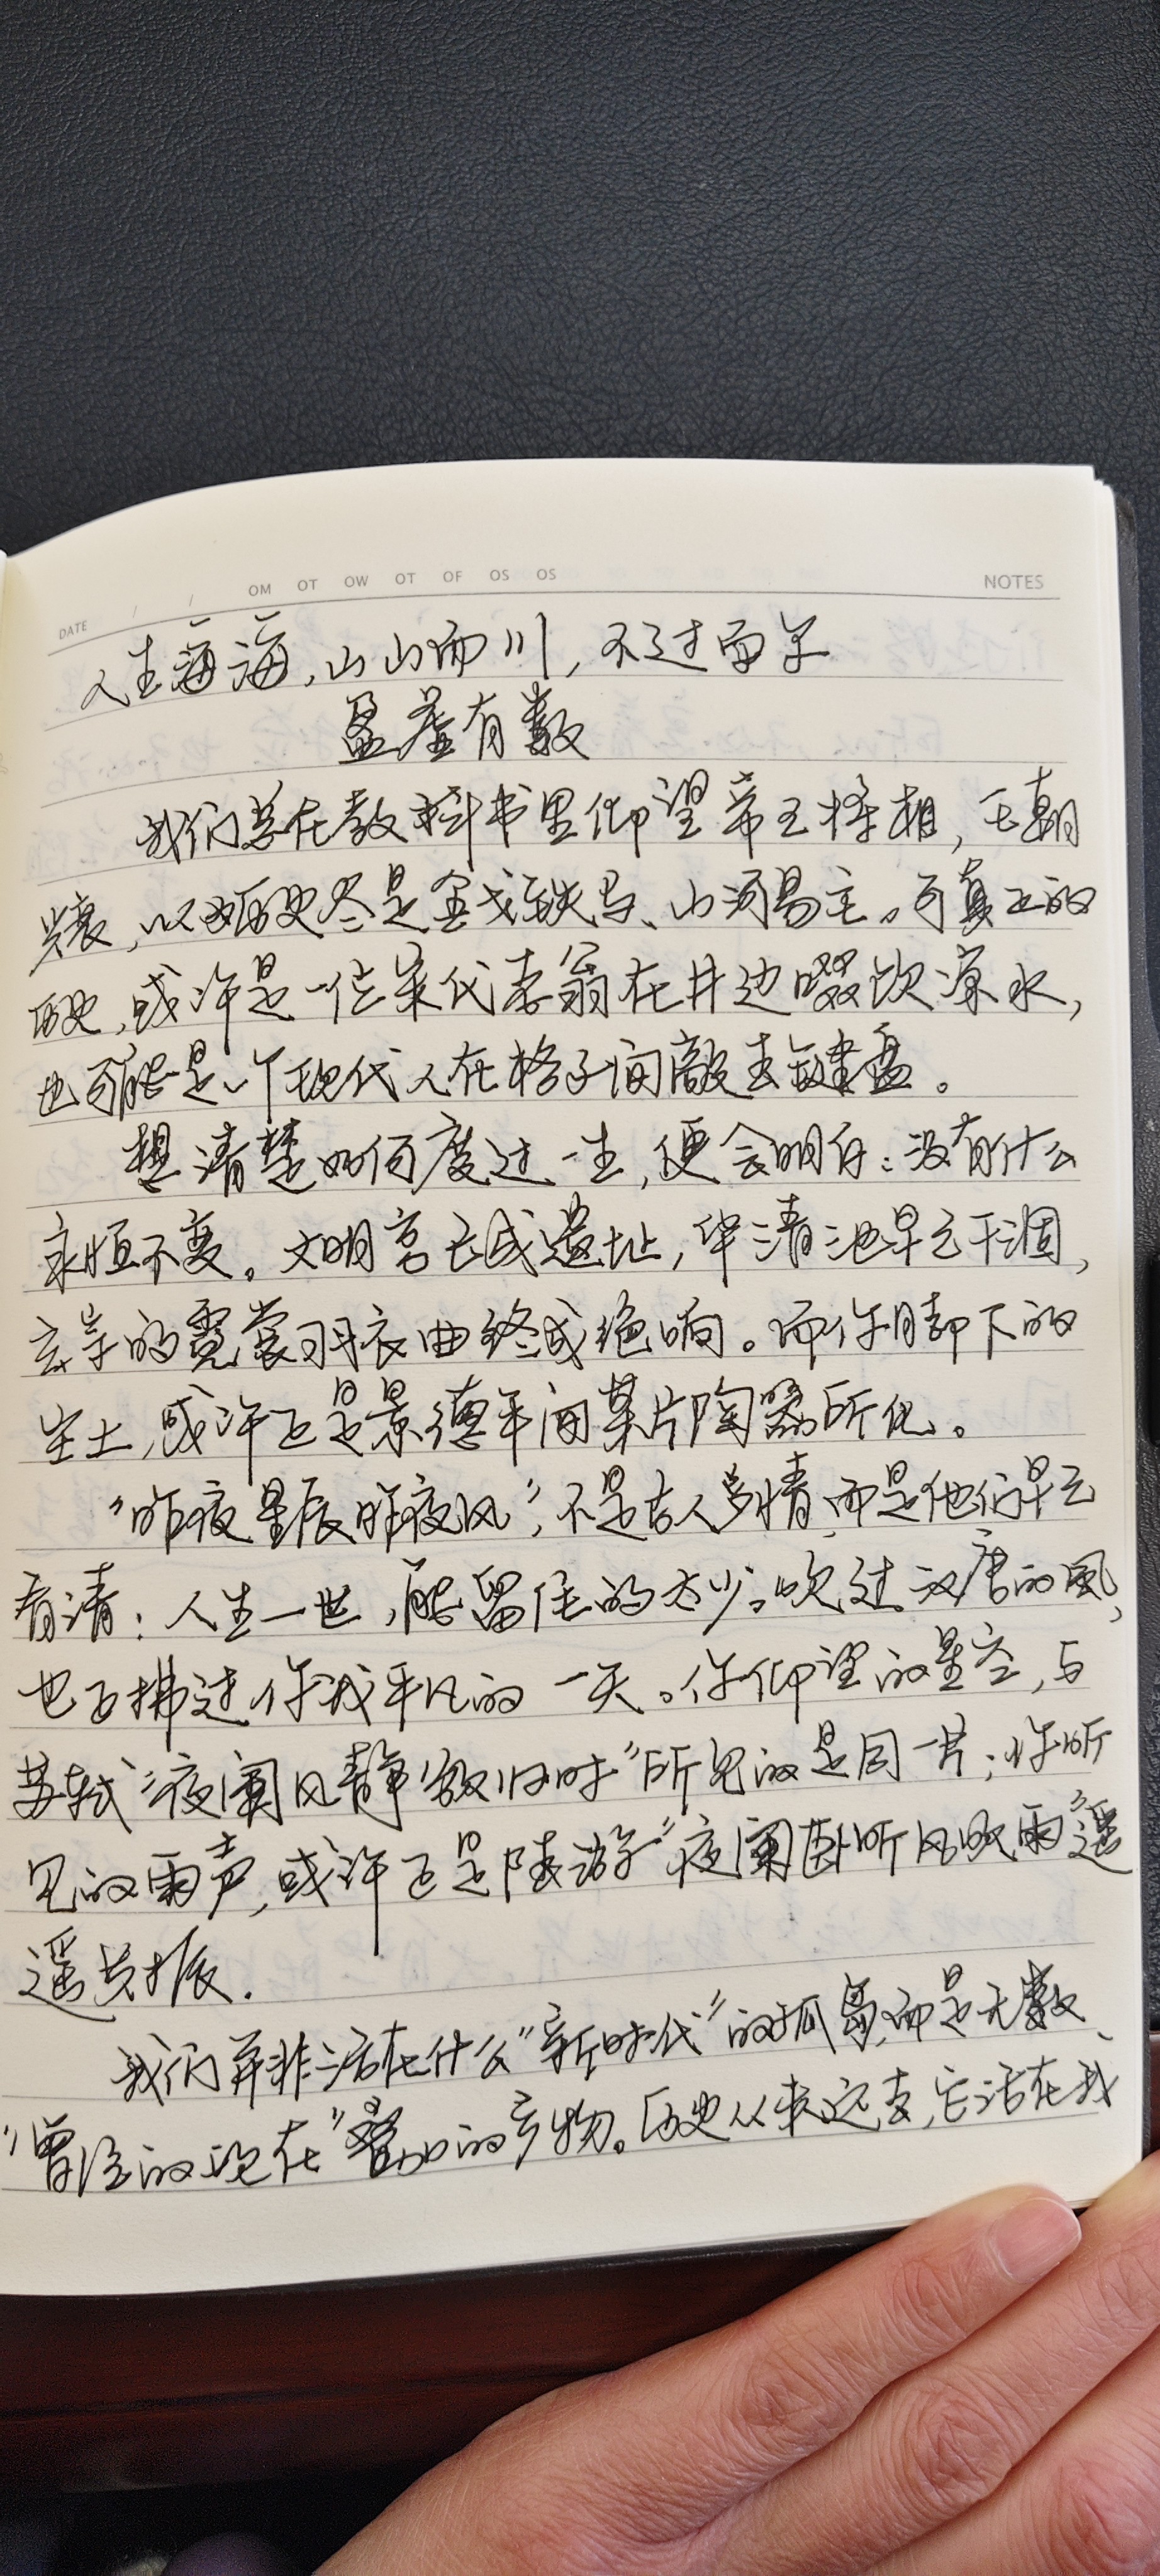 DATE / / OM OT OW OT OF OS OS NOTES
人生海海,山山而川,不过而尔
盈虚有数
我们总在教科书里仰望帝王将相,王朝
兴衰,以为历史尽是金戈铁马、山河易主。可真正的
历史,或许是一位宋代老翁在井边啜饮凉水,
也可能是一个现代人在格子间敲击键盘。
想清楚如何度过一生,便会明白:没有什么
永恒不变。大明宫已成遗址,华清池早已干涸,
玄宗的霓裳羽衣曲终成绝响。而你脚下的
尘土,或许正是景德年间某片陶器所化。
“昨夜星辰昨夜风”,不是古人多情,而是他们早已
看清:人生一世,能留住的太少。吹过汉唐的风,
也正拂过你我平凡的一天。你仰望的星空,与
苏轼“夜阑风静欲归时”所见的是同一片;你听
见的雨声,或许正是陆游“夜阑卧听风吹雨”遥
遥共振.
我们并非活在什么“新时代”的孤岛,而是无数
“曾经的现在”叠加的产物。历史从未远去,它活在我